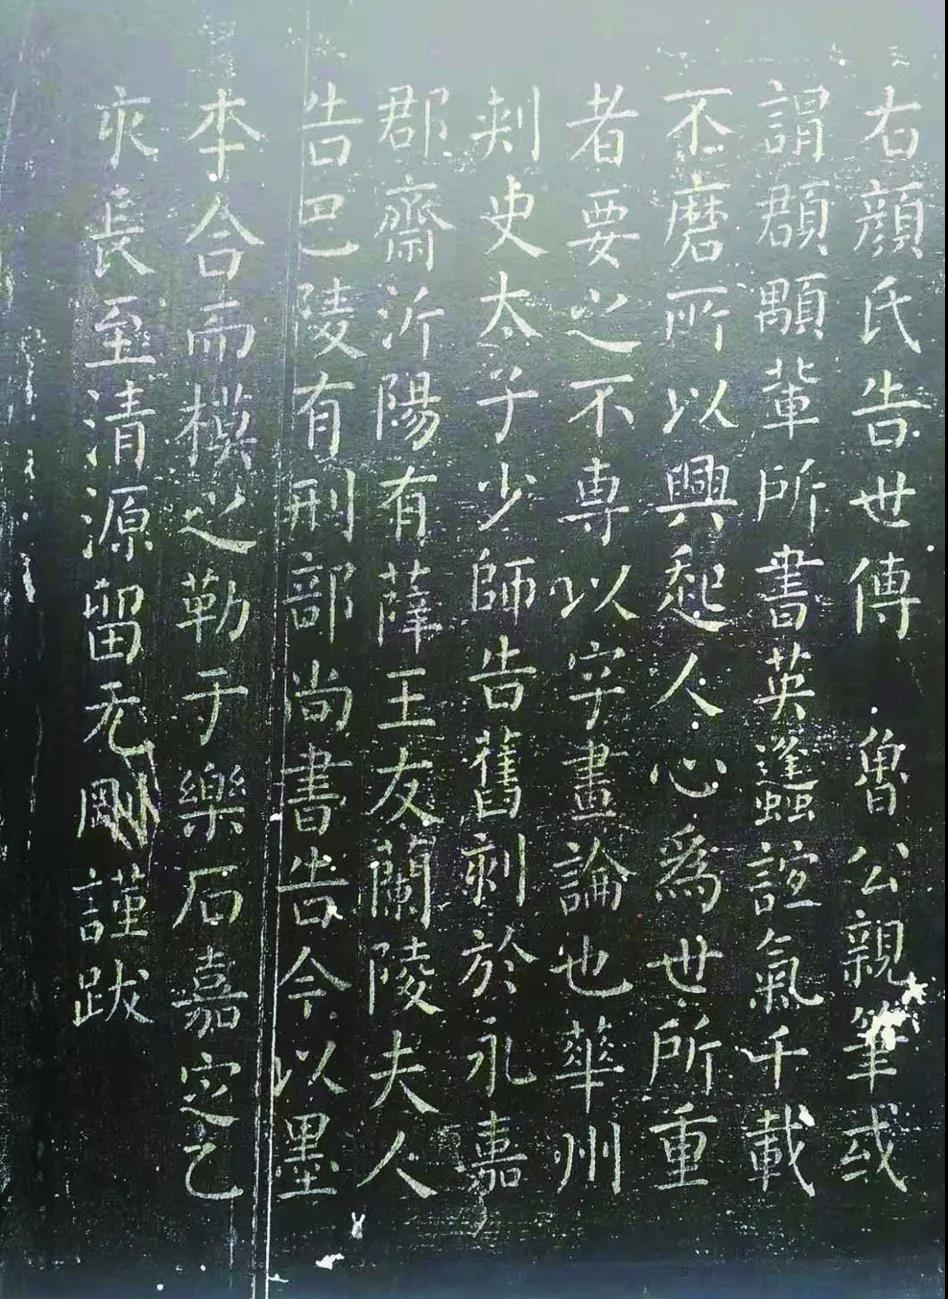 右顏氏告世傳 魯公親筆或
謂頵顒輩所書英蠭誼氣千載
不磨所以興起人心爲世所重
者要之不專以字畫論也華州
刺史太子少師告舊刻於永嘉
郡齋沂陽有薛王友蘭陵夫人
告巴陵有刑部尚書告今以墨
本合而模之勒于樂石嘉定乙
亥長至清源留元剛謹跋